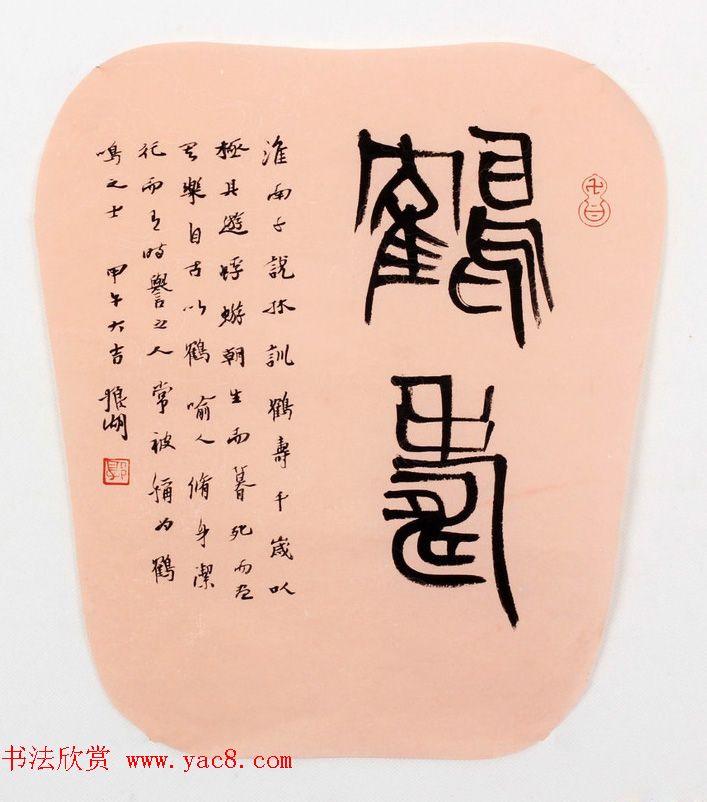 鶴壽
淮南子說林訓鶴壽千歲以
極其遊蜉蝣朝生而暮死而盡
其樂自古以鶴喻人脩身潔
行而有時譽之人常被稱為鶴
鳴之士 甲午大吉 湖
书法欣赏 www.yac8.com